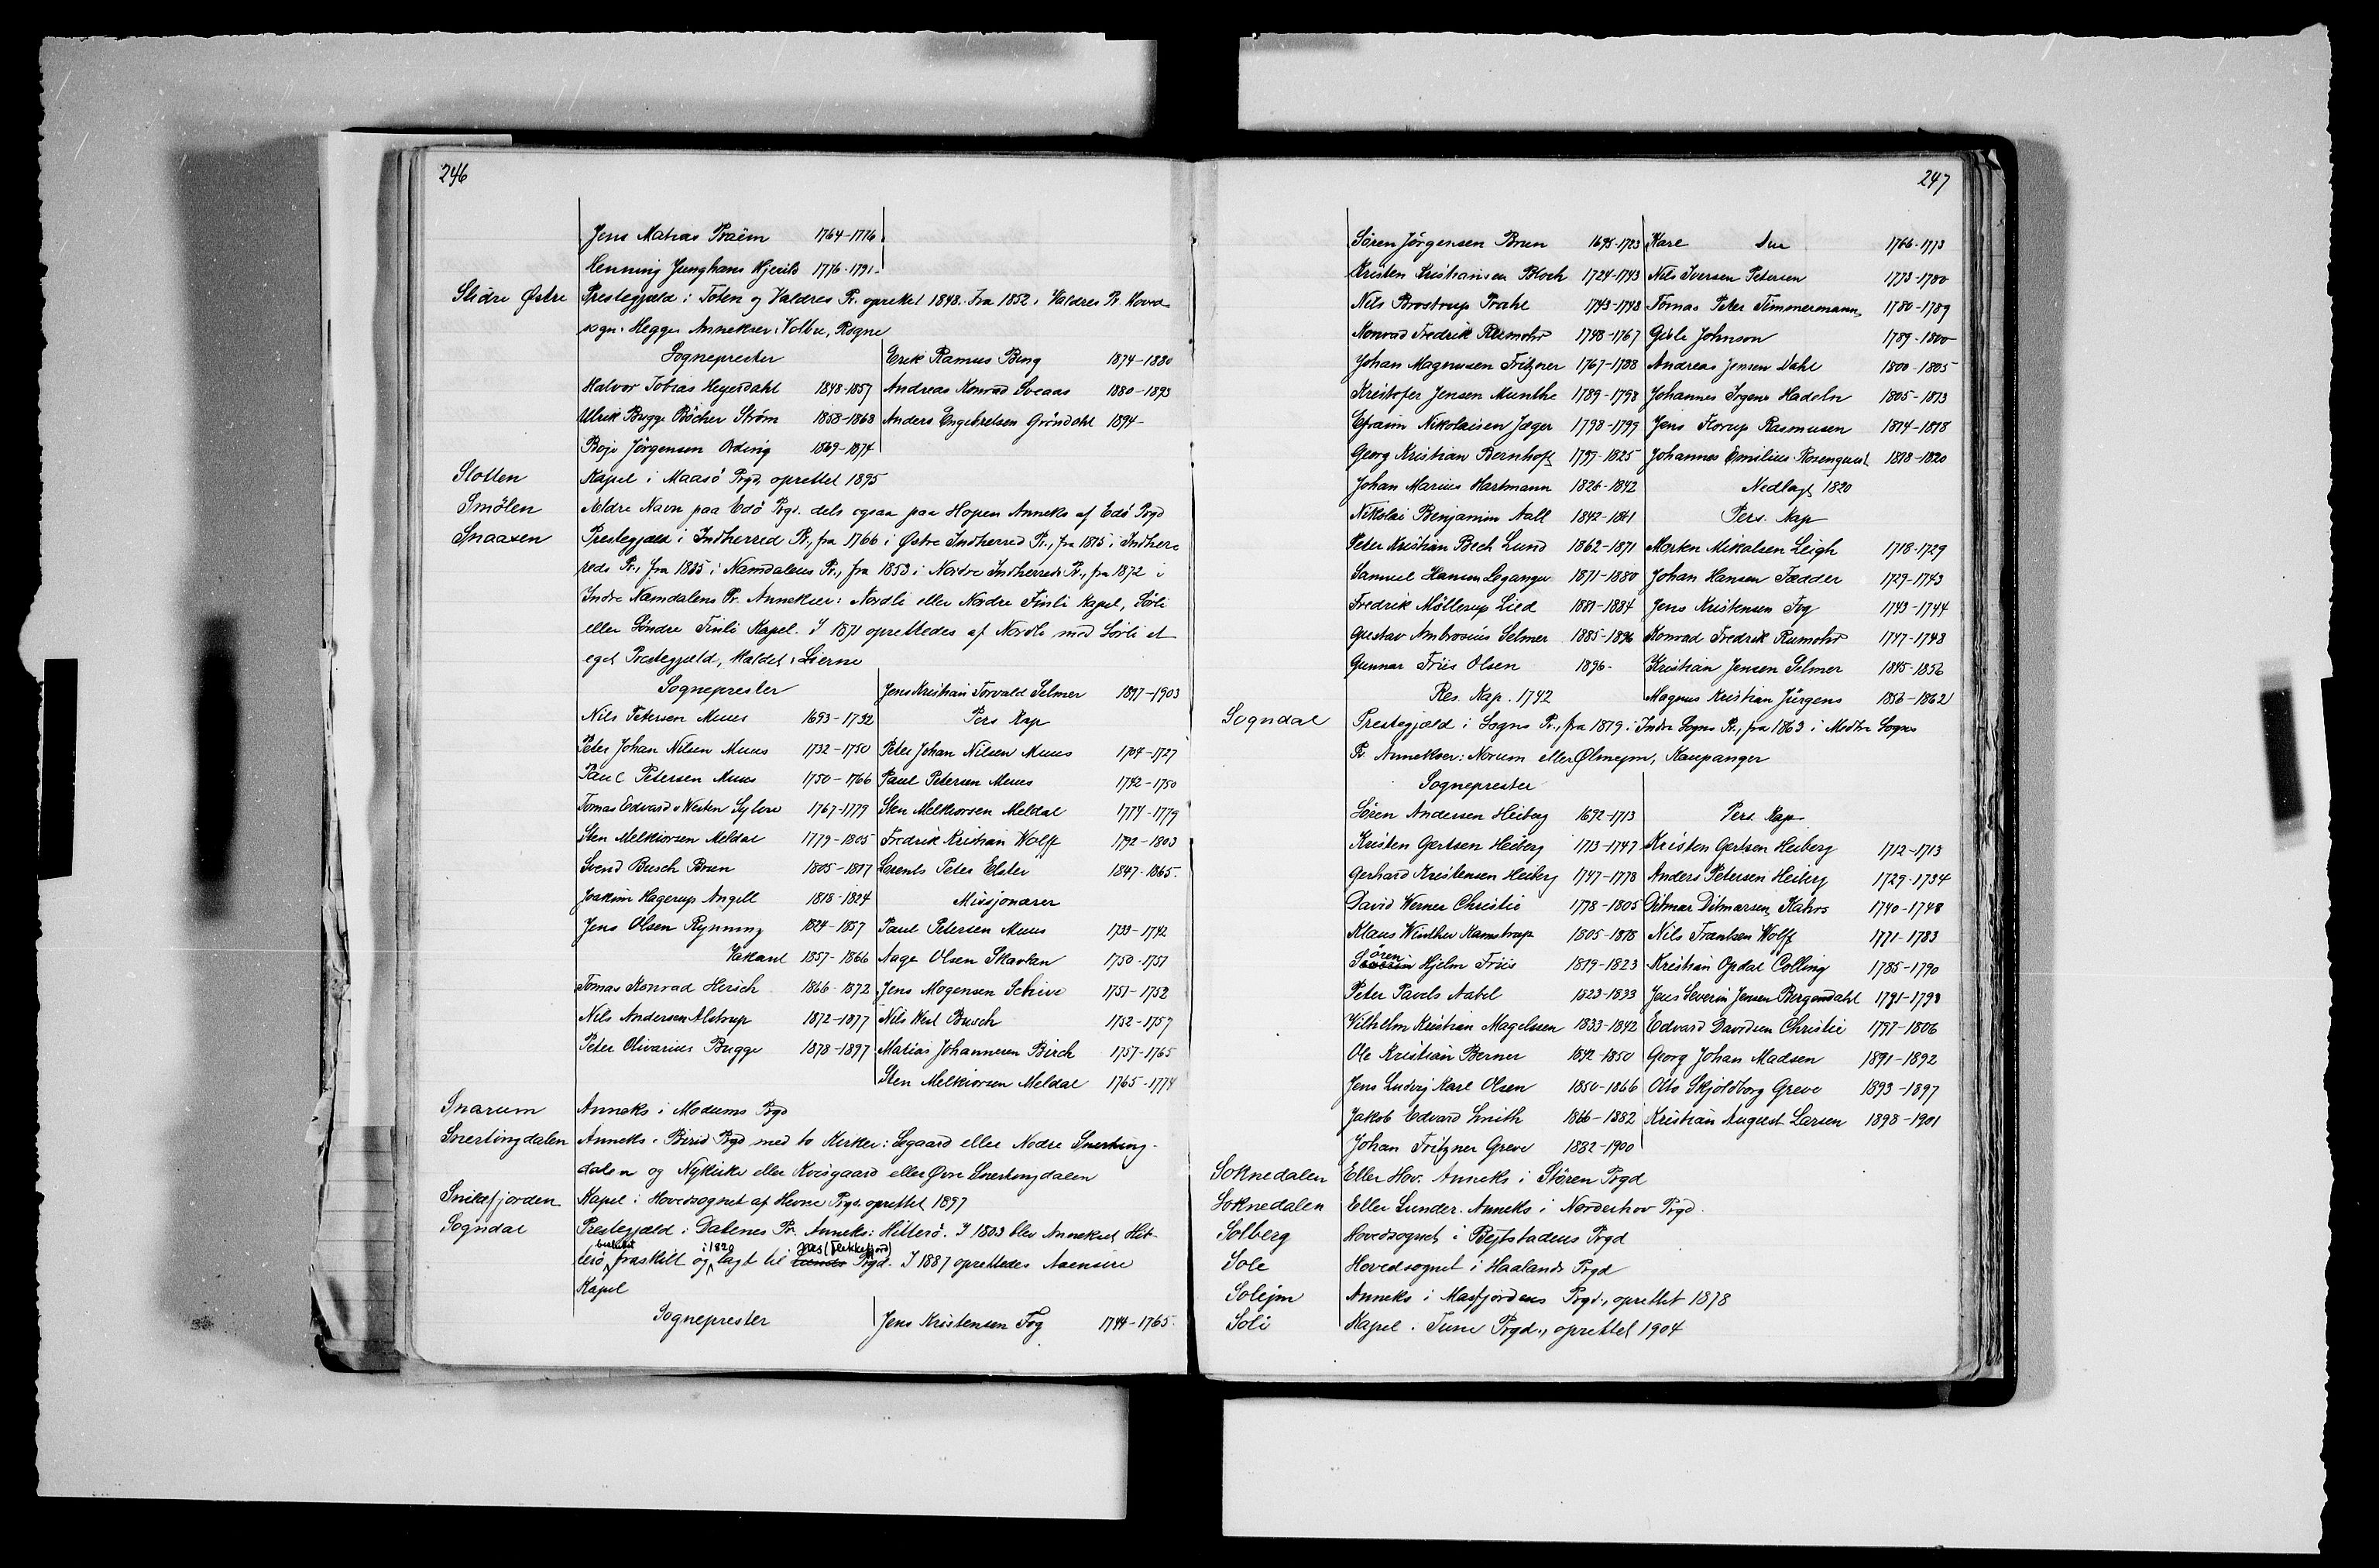 246
Jens Matias Praëm 1764-1776
Henning Junghans Kjerils 1776-1791
Slidre Østre Prestegjæld i Toten og Valdres Pr. oprettet 1848. Fra 1852 i Valdres Pr. Hoved-
sogn: Hegge Annekser: Volbu, Rogne
Sogneprester Erik Ramus Bing 1874-1880
Halvor Tobias Heyerdahl 1848-1857 Andreas Konrad Sveaas 1880-1893
Ulrik Bugge Böcher Ström 1858-1868 Anders Engebretsen Gröndahl 1894-
Boje Jörgensen Ording 1869-1874
Slotten Kapel i Maasö Pgd, oprettet 1895
Smölen Ældre Navn paa Edö Pgd. dels ogsaa paa Hopen Anneks af Edö Pgd
Snaasen Prestegjæld i Indherred Pr., fra 1766 i Østre Indherred Pr., fra 1815 i Indher-
reds Pr., fra 1835 i Namdalens Pr., fra 1853 i Nordre Indherreds Pr., fra 1872 i
Indre Namdalens Pr. Annekser: Nordli eller Nordre Finli Kapel, Sörli
eller Söndre Finli Kapel. I 1871 oprettedes af Nordli med Sörli et
eget Prestegjæld, kaldet: Lierne
Sogneprester Jens Kristian Torvald Selmer 1897-1903
Nils Petersen Muus 1693-1732 Pers Kap
Peter Johan Nilsen Muus 1732-1750 Peter Johan Nilsen Muus 1704-1727
Paul Petersen Muus 1750-1766 Paul Petersen Muus 1742-1750
Tomas Edvard v Westen Sylow 1767-1779 Sten Melkiorsen Meldal 1774-1779
Sten Melkiorsen Meldal 1779-1805 Fredrik Kristian Wolff 1792-1803
Svend Busch Brun 1805-1817 Lorents Peter Elster 1847-1865.
Joakim Hagerup Angell 1818-1824 Missjonærer
Jens Olsen Rynning 1824-1857 Paul Petersen Muus 1733-1742
Vakant 1857-1866 Aage Olsen Skavlan 1750-1751
Tomas Konrad Hirsch 1866-1872 Jens Mogensen Schive 1751-1752
Nils Andersen Alstrup 1872-1877 Nils West Busch 1752-1757
Peter Olivarius Bugge 1878-1897 Matias Johannesen Birch 1757-1765
Sten Melkiorsen Meldal 1765-1774
Snarum Anneks i Modums Pgd
Snertingdalen Anneks i Birid Pgd med to Kirker: Segaard eller Nedre Snerting-
dalen og Nykirke eller Kvisgaard eller Øvre Snertingdalen
Snikefjorden Kapel i Hovedsognet af Hevne Pgd. oprettet 1897
Sogndal Prestegjæld i Dalenes Pr. Anneks: Hitterö. I 1803 blev Annekset Hit-
besluttet i 1820 Næs (Flekkefjord)
terö fraskilt og lagt til Lunds Pgd. I 1887 oprettedes Aaensire
Kapel
Sogneprester Jens Kristensen Fog 1744-1765.
247
Sören Jörgensen Brun 1695-1723 Kare Due 1766-1773
Kristen Kristiansen Bloch 1724-1743 Nils Iversen Petersen 1773-1780
Nils Brostrup Prahl 1743-1748 Tomas Peter Timmermann 1780-1789
Konrad Fredrik Rumohr 1748-1767 Gisle Johnson 1789-1800
Johan Magnusen Fritzner 1767-1788 Andreas Jensen Dahl 1800-1805
Kristofer Jensen Munthe 1789-1798 Johannes Irgens Hadeln 1805-1813
Efraim Nikolaisen Jæger 1798-1799 Jens Storup Rasmusen 1814-1818
Georg Kristian Bernhoft 1799-1825 Johannes Emilius Rosenqvist 1818-1820
Johan Marius Hartmann 1826-1842 Nedlagt 1820
Nikolai Benjamin Aall 1842-1861 Pers. Kap
Peter Kristian Bech Lund 1862-1871 Morten Mikalsen Leigh 1718-1729
Samuel Hansen Leganger 1871-1880 Johan Hansen Tædder 1729-1743
Fredrik Möllerup Lied 1881-1884 Jens Kristensen Fog 1743-1744
Gustav Ambrosius Selmer 1885-1896 Konrad Fredrik Rumohr 1747-1748
Gunnar Friis Olsen 1896- Kristian Jensen Selmer 1845-1856
Res. Kap. 1742 Magnus Kristian Jürgens 1856-1862
Sogndal Prestegjæld i Sogns Pr., fra 1819 i Indre Sogns Pr., fra 1863 i Midtre Sogns
Pr. Annekser: Norum eller Ølmejm, Kaupanger
Sogneprester
Sören Andersen Heiberg 1692-1713 Pers. Kap
Kristen Gertsen Heiberg 1713-1747 Kristen Gertsen Heiberg 1712-1713
Gerhard Kristensen Heiberg 1747-1778 Anders Petersen Heiberg 1729-1734
David Werner Christie 1778-1805 Ditmar Ditmarsen Kahrs 1740-1748
Klaus Winther Kamstrup 1805-1818 Nils Frantsen Wolff 1771-1783
ören
Severin Hjelm Friis 1819-1823 Kristian Opdal Colling 1785-1790
Peter Pavels Aabel 1823-1833 Jens Severin Jensen Bergendahl 1791-1798
Vilhelm Kristian Magelssen 1833-1842 Edvard Davidsen Christie 1797-1806
Ole Kristian Berner 1842-1850 Georg Johan Madsen 1891-1892
Jens Ludvig Karl Olsen 1850-1866 Otto Skjoldborg Greve 1893-1897
Jakob Edvard Smith 1866-1882 Kristian August Larsen 1898-1901
Johan Fritzner Greve 1882-1900
Soknedalen Eller Hov. Anneks i Stören Pgd
Soknedalen Eller Lunder. Anneks i Norderhov Pgd.
Solberg Hovedsognet i Bejtstadens Pgd
Sole Hovedsognet i Haalands Pgd
Solejm Anneks i Masfjordens Pgd., oprettet 1878
Soli Kapel i Tune Pgd., oprettet 1904